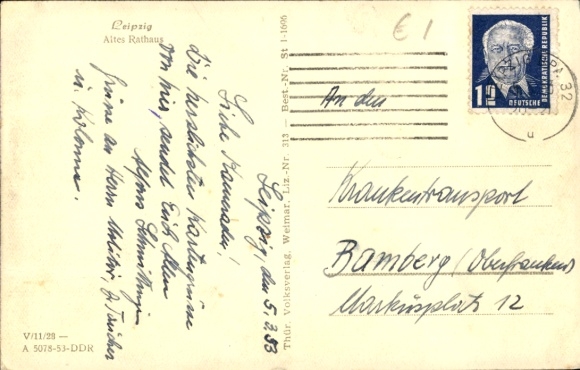 Leipzig
Altes Rathaus
Leipzig, den 5.2.53
Liebe Kameraden!
Die herzlichsten Kartengrüsse
von hier, sendet Euch allen
Grüsse an Herrn
V/11/28 —
A 5078-53-DDR
Thür. Volksverlag, Weimar, Liz.-Nr. 313 — Best.-Nr. St 1-1696
€ 1
DEUTSCHE
DEMOKRATISCHE REPUBLIK
An den
Krankentransport
Bamberg/Oberfranken)
Markusplatz 12